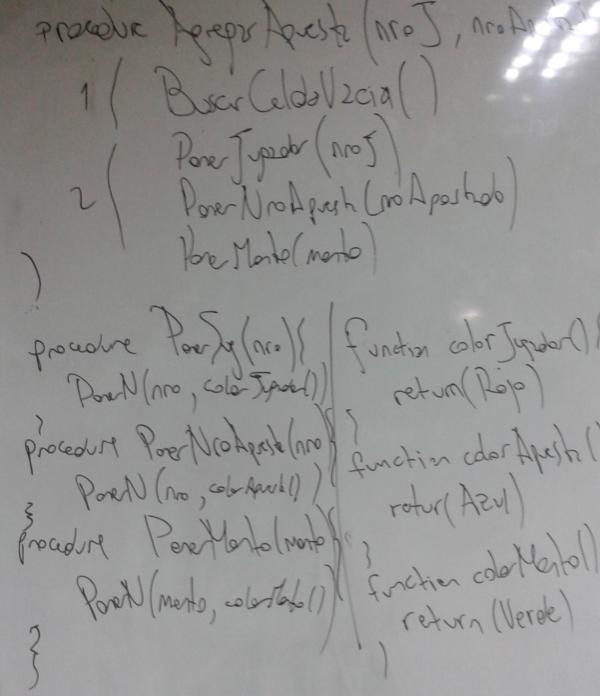 procedure AgregarApuesta(nroJ,
1 ( BuscarCeldaVacia()
PonerJugador(nroJ)
2 ( PonerNroApuesta(nroApostado)
PonerMonto(monto)
}
procedure PonerJug(nro){
PonerN(nro, colorJugador())
}
procedure PonerNroApuesta(nro){
PonerN(nro, colorApuesta())
}
procedure PonerMonto(monto){
PonerN(monto, colorMonto())
}
}
function colorJugador(){
return(Rojo)
}
function colorApuesta(
retur(Azul)
}
function colorMonto()
return(Verde)
}